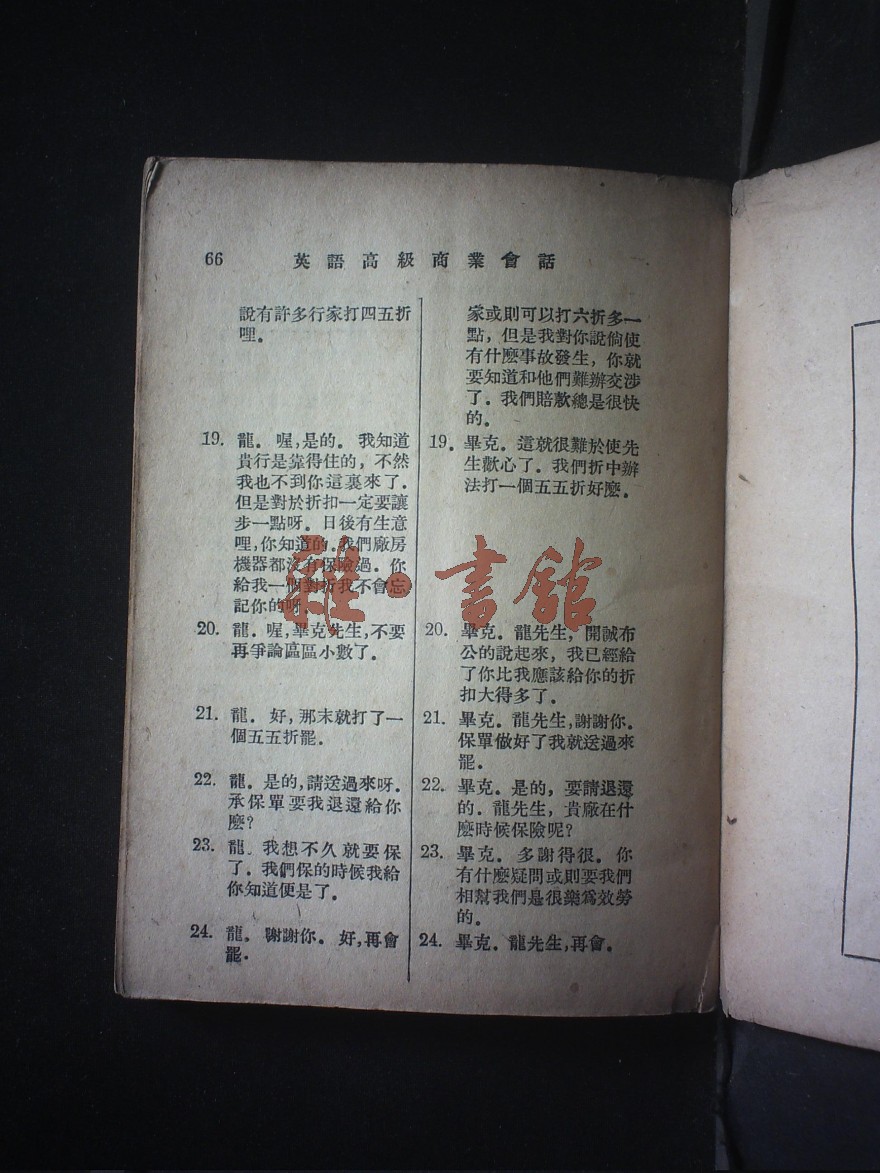 66 英語高級商業會話
說有許多行家打四五折
哩。
19. 龍. 喔,是的. 我知道
貴行是靠得住的, 不然
我也不到你這裏來了.
但是對於折扣一定要讓
步一點呀. 日後有生意
哩,你知道的.我們廠房
機器都沒有保險過. 你
給我一個對折我不會忘
記你的呀.
20. 龍. 喔,畢克先生,不要
再爭論區區小數了.
21. 龍. 好,那末就打了一
個五五折罷.
22. 龍. 是的,請送過來呀.
承保單要我退還給你
麽?
23. 龍. 我想不久就要保
了. 我們保的時候我給
你知道便是了.
24. 龍. 謝謝你. 好,再會
罷.
家或則可以打六折多一
點, 但是我對你說倘使
有什麽事故發生, 你就
要知道和他們難辦交涉
了. 我們賠款總是很快
的.
19. 畢克. 這就很難於使先
生歡心了. 我們折中辦
法打一個五五折好麽.
20. 畢克. 龍先生, 開誠布
公的說起來, 我已經給
了你比我應該給你的折
扣大得多了.
21. 畢克. 龍先生,謝謝你.
保單做好了我就送過來
罷.
22. 畢克. 是的, 要請退還
的. 龍先生, 貴廠在什
麽時候保險呢?
23. 畢克. 多謝得很. 你
有什麽疑問或則要我們
相幫我們是很樂爲效勞
的.
24. 畢克. 龍先生,再會.
雜·書館